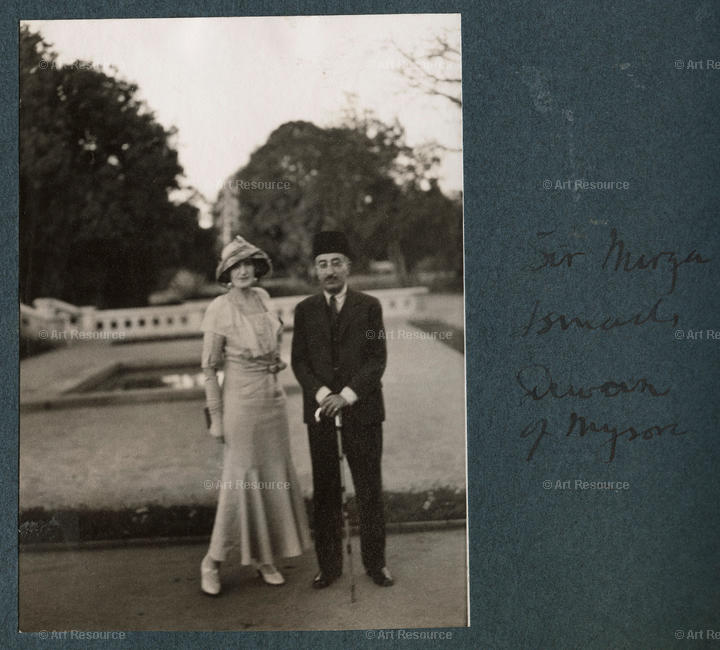 Sir Mirza
Ismail
Dewan
of Mysore
© Art Resource
© Art Resource
© Art Resource
© Art Resource
© Art Resource
© Art Resource
© Art Resource
© Art Resource
© Art Resource
© Art Resource
© Art Resource
© Art Resource
© Art Resource